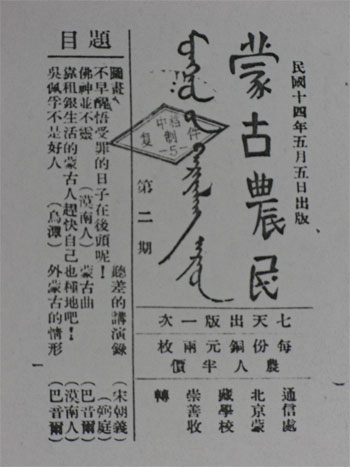 民國十四年五月五日出版
蒙古農民
第二期
七天出版一次
每份銅元兩枚
農人半價
通信處
北京蒙
藏學校
榮善收
轉
題目
圖畫 聽差的講演錄（宋朝義）
不早醒悟受罪的日子在後頭呢！
佛神並不靈（漠南人）蒙古曲（巴音爾）
靠租銀生活的蒙古人趕快自己也種地吧！（漠南人）
吳佩孚不是好人（烏潭）外蒙古的情形（巴音爾）